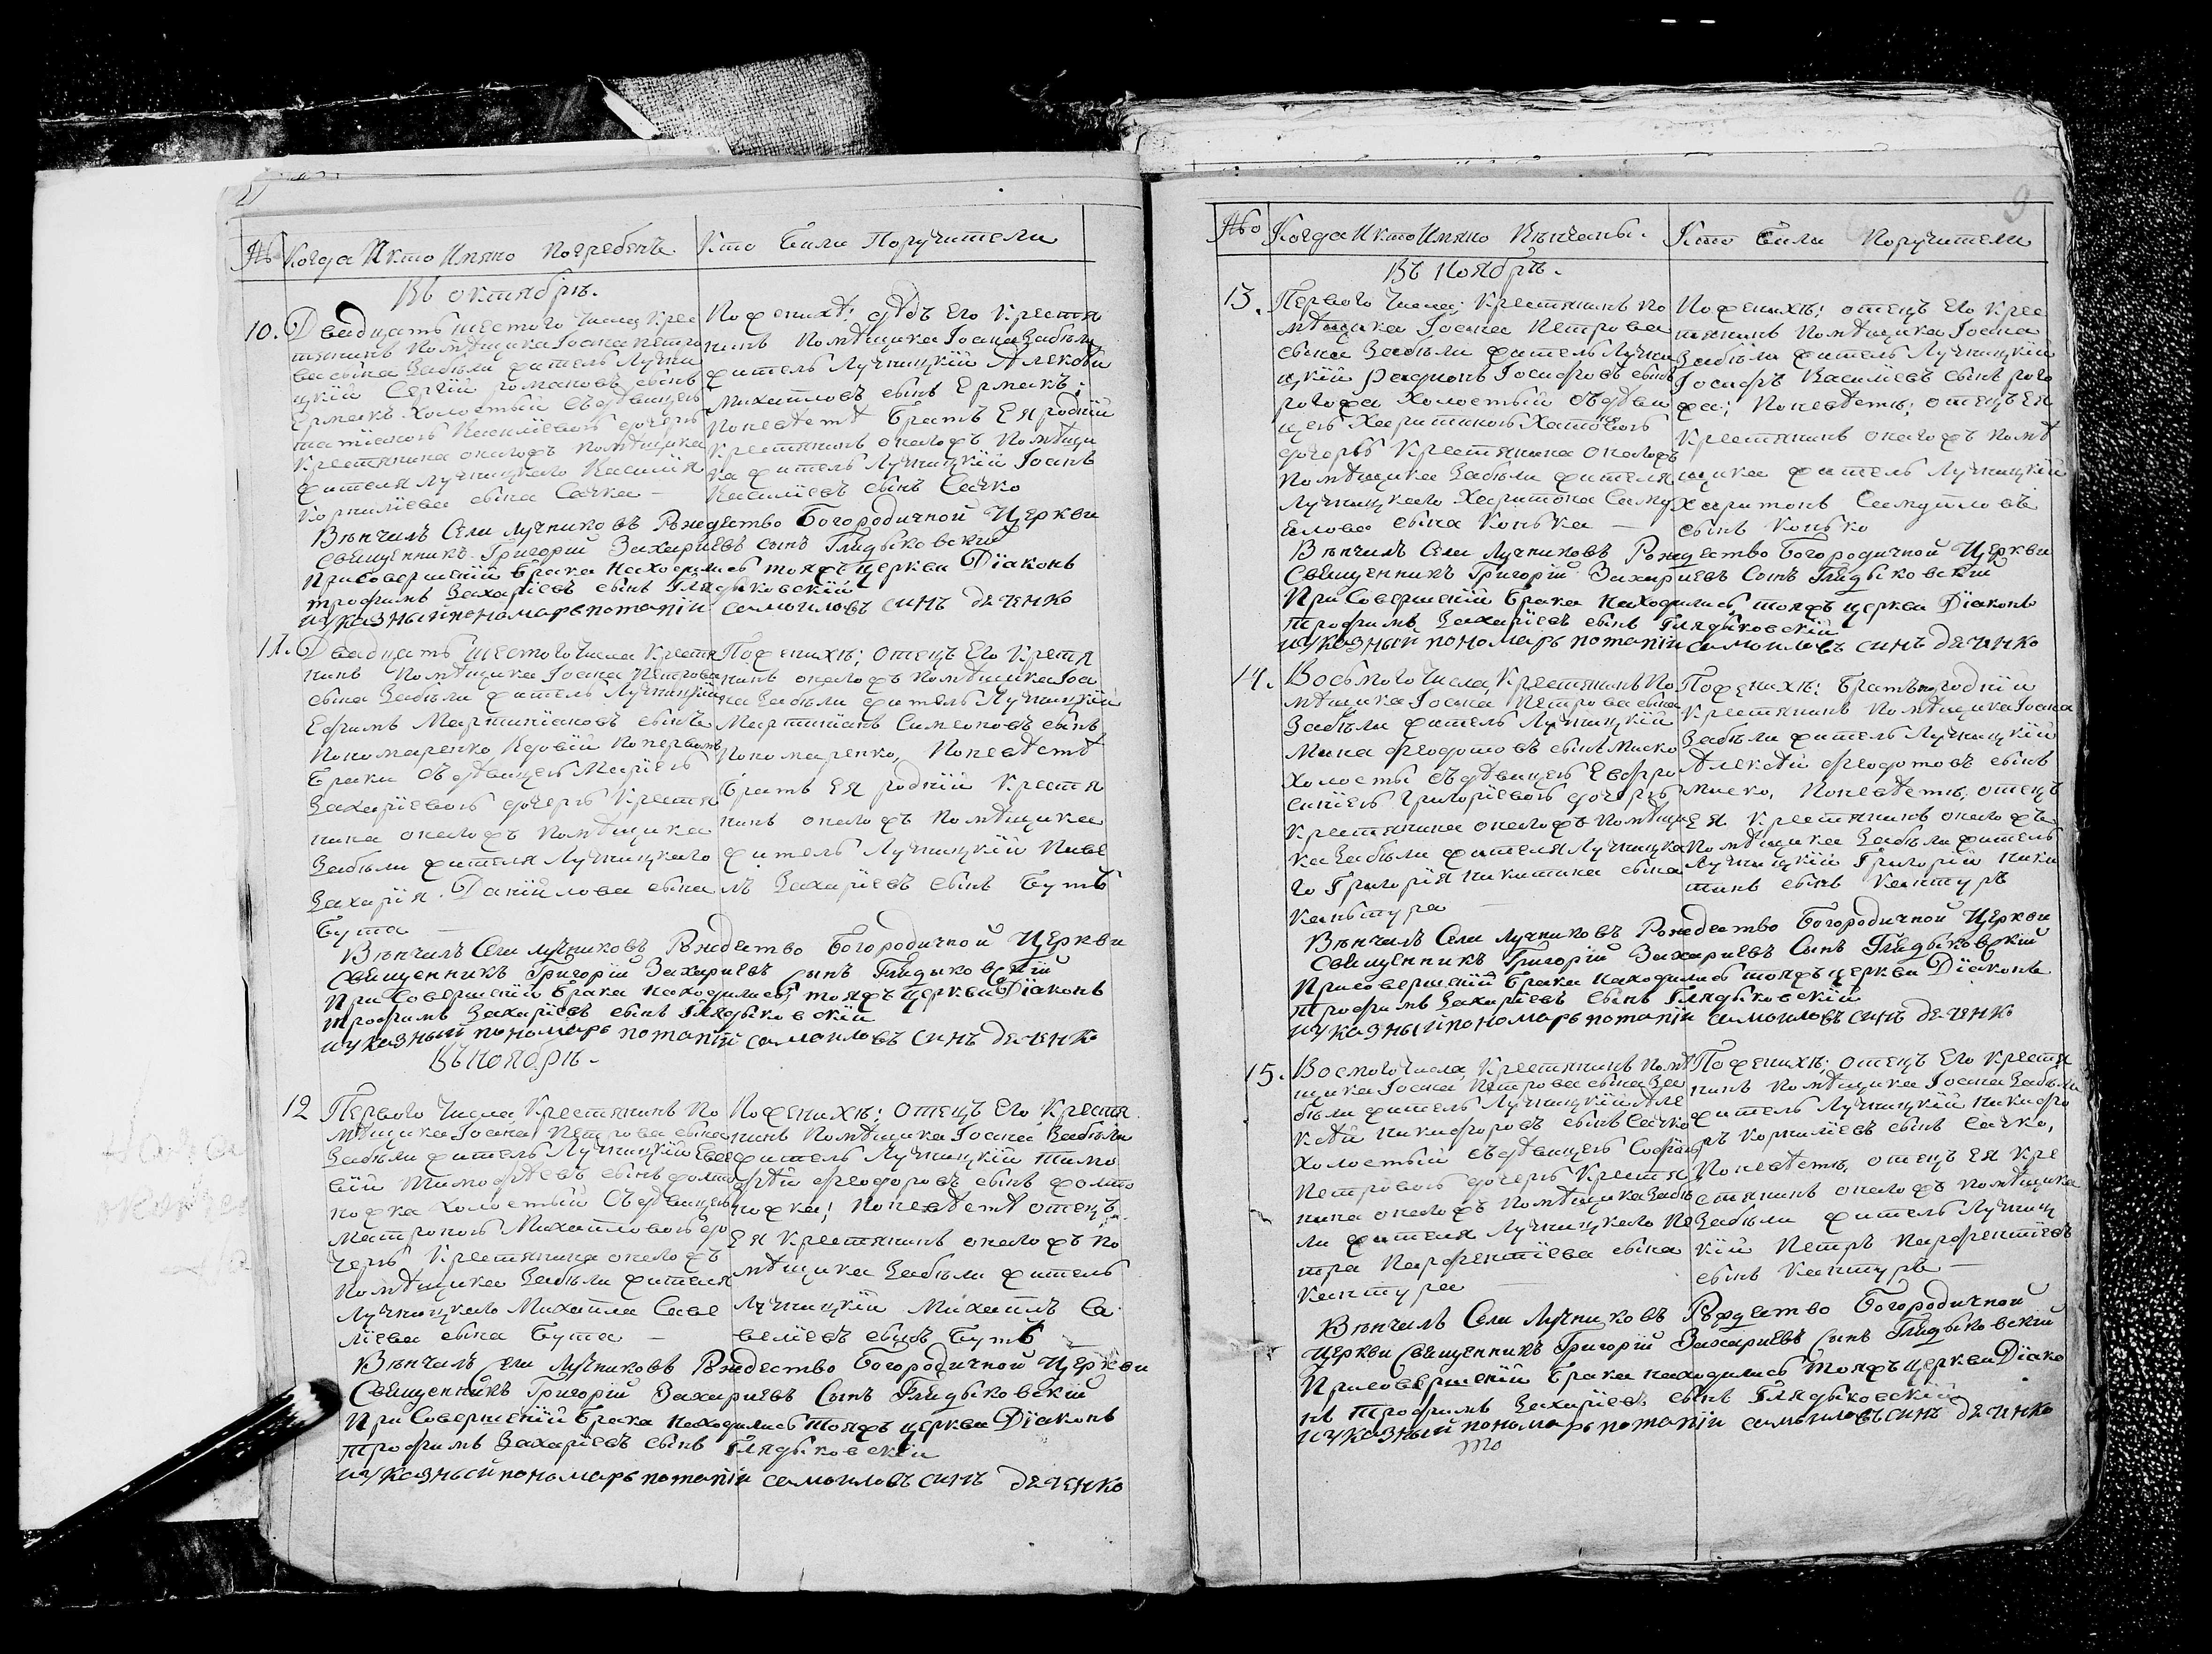 № Когда И кто Имяно погребенъ. Кто были Поручители
Въ октябрѣ.
10. Двадцать шестого Числа Крес
тянинъ помѣщика Іоана петро
ва сына Забѣли житель Лучни
цкій Сергій романовъ сынъ
Ермакъ холостый съ дѣвицею
Васіліевою дочерю
Крестянина оного жъ помѣщика
жителя Лучницкаго Василія
Корниліева сына Сачка —
По женихѣ: дѣдъ Его Крестя
нинъ Помѣщика Іоана Забѣли
житель Лучницкій Алексѣй
Михайловъ сынъ Ермакъ;
По невѣстѣ братъ Ея родній
Крестянинъ оного жъ помѣщи
ка житель Лучницкій Іоанъ
Василіевъ сынъ Сачко
Вѣнчалъ Села Лучниковъ Рждество Богородичной Церкви
Священникъ Григорій Захариевъ сынъ Глядыковскій
При Совершеній брака находились тояжъ церкви Діаконъ
трофимъ Захаріевъ сынъ Глядыковскій
и указный пономарь потапій самоиловъ синъ деченко
11. Двадцать шестого Числа Крестя
нинъ Помѣщика Іоана Петрова
сына Забѣли житель Лучницкій
Ефимъ Мартиніановъ сынъ
Пономаренко Вдовій по первомъ
браки съ дѣвицею Маріею
Захаріевою дочерю Крестя
нина оного жъ помѣщика
Забѣли жителя Лучницкаго
Захарія Даніилова сына
Бута —
По женихѣ; Отецъ Его Крестя
нинъ оного жъ Помѣщика Іоа
на Забѣли житель Лучницкій
Мартиніанъ Симеоновъ сынъ
Пономаренко, По невѣстѣ
братъ Ея родній Крестя
нинъ оного жъ Помѣщика
житель Лучницкій Паве
лъ Захаріевъ сынъ Бутъ
Вѣнчалъ Села Лучниковъ Рждество Богородичной Церкви
Священникъ Григорій Захариевъ Сынъ Глядыковскій
При Совершеній брака находились тояжъ церкви Діаконъ
трофимъ Захаріевъ сынъ Глядыковскій
и указный пономарь потапій самоиловъ синъ деченко
Въ Ноябрѣ.
12 Первого Числа, Крестянинъ По
мѣщика Іоана Петрова сына
Забѣли житель Лучницкій
вій Тимофѣевъ сынъ
холостый Съ дѣвицею
Матроною Михайловою до
черю Крестянина оного жъ
Помѣщика Забѣли жителя
Лучницкаго Михаила Саве
ліева сына Бута —
По женихѣ: отецъ Его, Крестя
нинъ Помѣщика Іоана Забѣли
житель Лучницкій Тимо
фѣй Феодоровъ сынъ
По невѣстѣ отецъ
Ея Крестянинъ оного жъ По
мѣщика Забѣли житель
Лучницкій Михаилъ Са
веліевъ сынъ Бутъ
Вѣнчалъ Села Лучниковъ Рждество Богородичной Церкви
Священникъ Григорій Захариевъ Сынъ Глядыковскій
При Совершеній брака находились тояжъ церкви Діаконъ
трофимъ Захаріевъ сынъ Глядыковскій
и указный пономарь потапій самоиловъ синъ деченко
9
№о Когда И кто Имяно Вѣнчаны. Кто были поручители
Въ Ноябрѣ.
13. Первого Числа; Крестянинъ по
мѣщика Іоана Петрова
сына Забѣли житель Лучни
цкій Родіонъ Іосифовъ сынъ
рогожа холостый съ дѣви
цею Харитиною Харитоною
дочерью Крестянина оного жъ
помѣщика Забѣли жителя
Лучницкаго Харитона Саму
илова сына Конька —
По женихѣ: отецъ Его Крес
тянинъ Помѣщика Іоана
Забѣли житель Лучницкій
Іосифъ Василіевъ сынъ рого
жа; По невѣстѣ; отецъ Ея
Крестянинъ оного жъ помѣ
щика житель Лучницкій
Харитонъ Самуиловъ
сынъ Конько
Вѣнчалъ Села Лучниковъ Рождество Богородичной Церкви
Священникъ Григорій Захариевъ Сынъ Глядыковскій
При Совершеній брака находились тояжъ церкви Діаконъ
трофимъ Захаріевъ сынъ Глядыковскій
и указный пономарь потапій самоиловъ синъ деченко
14. Восьмого Числа, Крестянинъ По
мѣщика Іоана Петрова сына
Забѣли житель Лучницкій
Мина Феодотовъ сынъ Миско
холосты съ дѣвицею Евфро
синіею Григоріевою дочерю
Крестянина оного жъ помѣщи
ка Забѣли жителя Лучницка
го Григорія никитина сына
Кантура —
По женихѣ: братъ родній
Крестянинъ Помѣщика Іоана
Забѣли житель Лучницкій
Алексѣй Феодотовъ сынъ
Миско, По невѣстѣ, отецъ
Ея Крестянинъ оного жъ
Помѣщика Забѣли житель
Лучницкій Григорій Ники
тинъ сынъ Кантуръ
Вѣнчалъ Села Лучниковъ Рождество Богородичной Церкви
Священникъ Григорій Захариевъ Сынъ Глядыковскій
При совершеній брака находились тояжъ церкви Діаконъ
трофимъ Захаріевъ сынъ Глядыковскій
и указный пономарь потапій самоиловъ синъ деченко
15. Восмого Числа, Крестянинъ Помѣ
щика Іоана Петрова сына За
бѣли житель Лучницкій Але
ксѣй Никифоровъ сынъ Сачко
холостый съ дѣвицею Софіею
Петровою дочерю Крестя
нина оного жъ помѣщика Забѣ
ли жителя Лучницкаго Пе
тра Парфентіева сына
Кантура —
По женихѣ; отецъ Его Крестя
нинъ помѣщика Іоана Забѣли
житель Лучницкій Никифо
ръ Корниліевъ сынъ Сачко,
По невѣстѣ, отецъ Ея Кре
стянинъ оного жъ помѣщика
Забѣли житель Лучниц
кій Петръ Парфентіевъ
сынъ Кантуръ —
Вѣнчалъ Села Лучниковъ Рждество Богородичной
Церкви Священникъ Григорій Захариевъ Сынъ Глядыковскій
При совершеній брака находились тояжъ церкви Діако
нъ трофимъ Захаріевъ сынъ Глядыковскій
и указный пономарь потапій самоиловъ синъ деченко
то